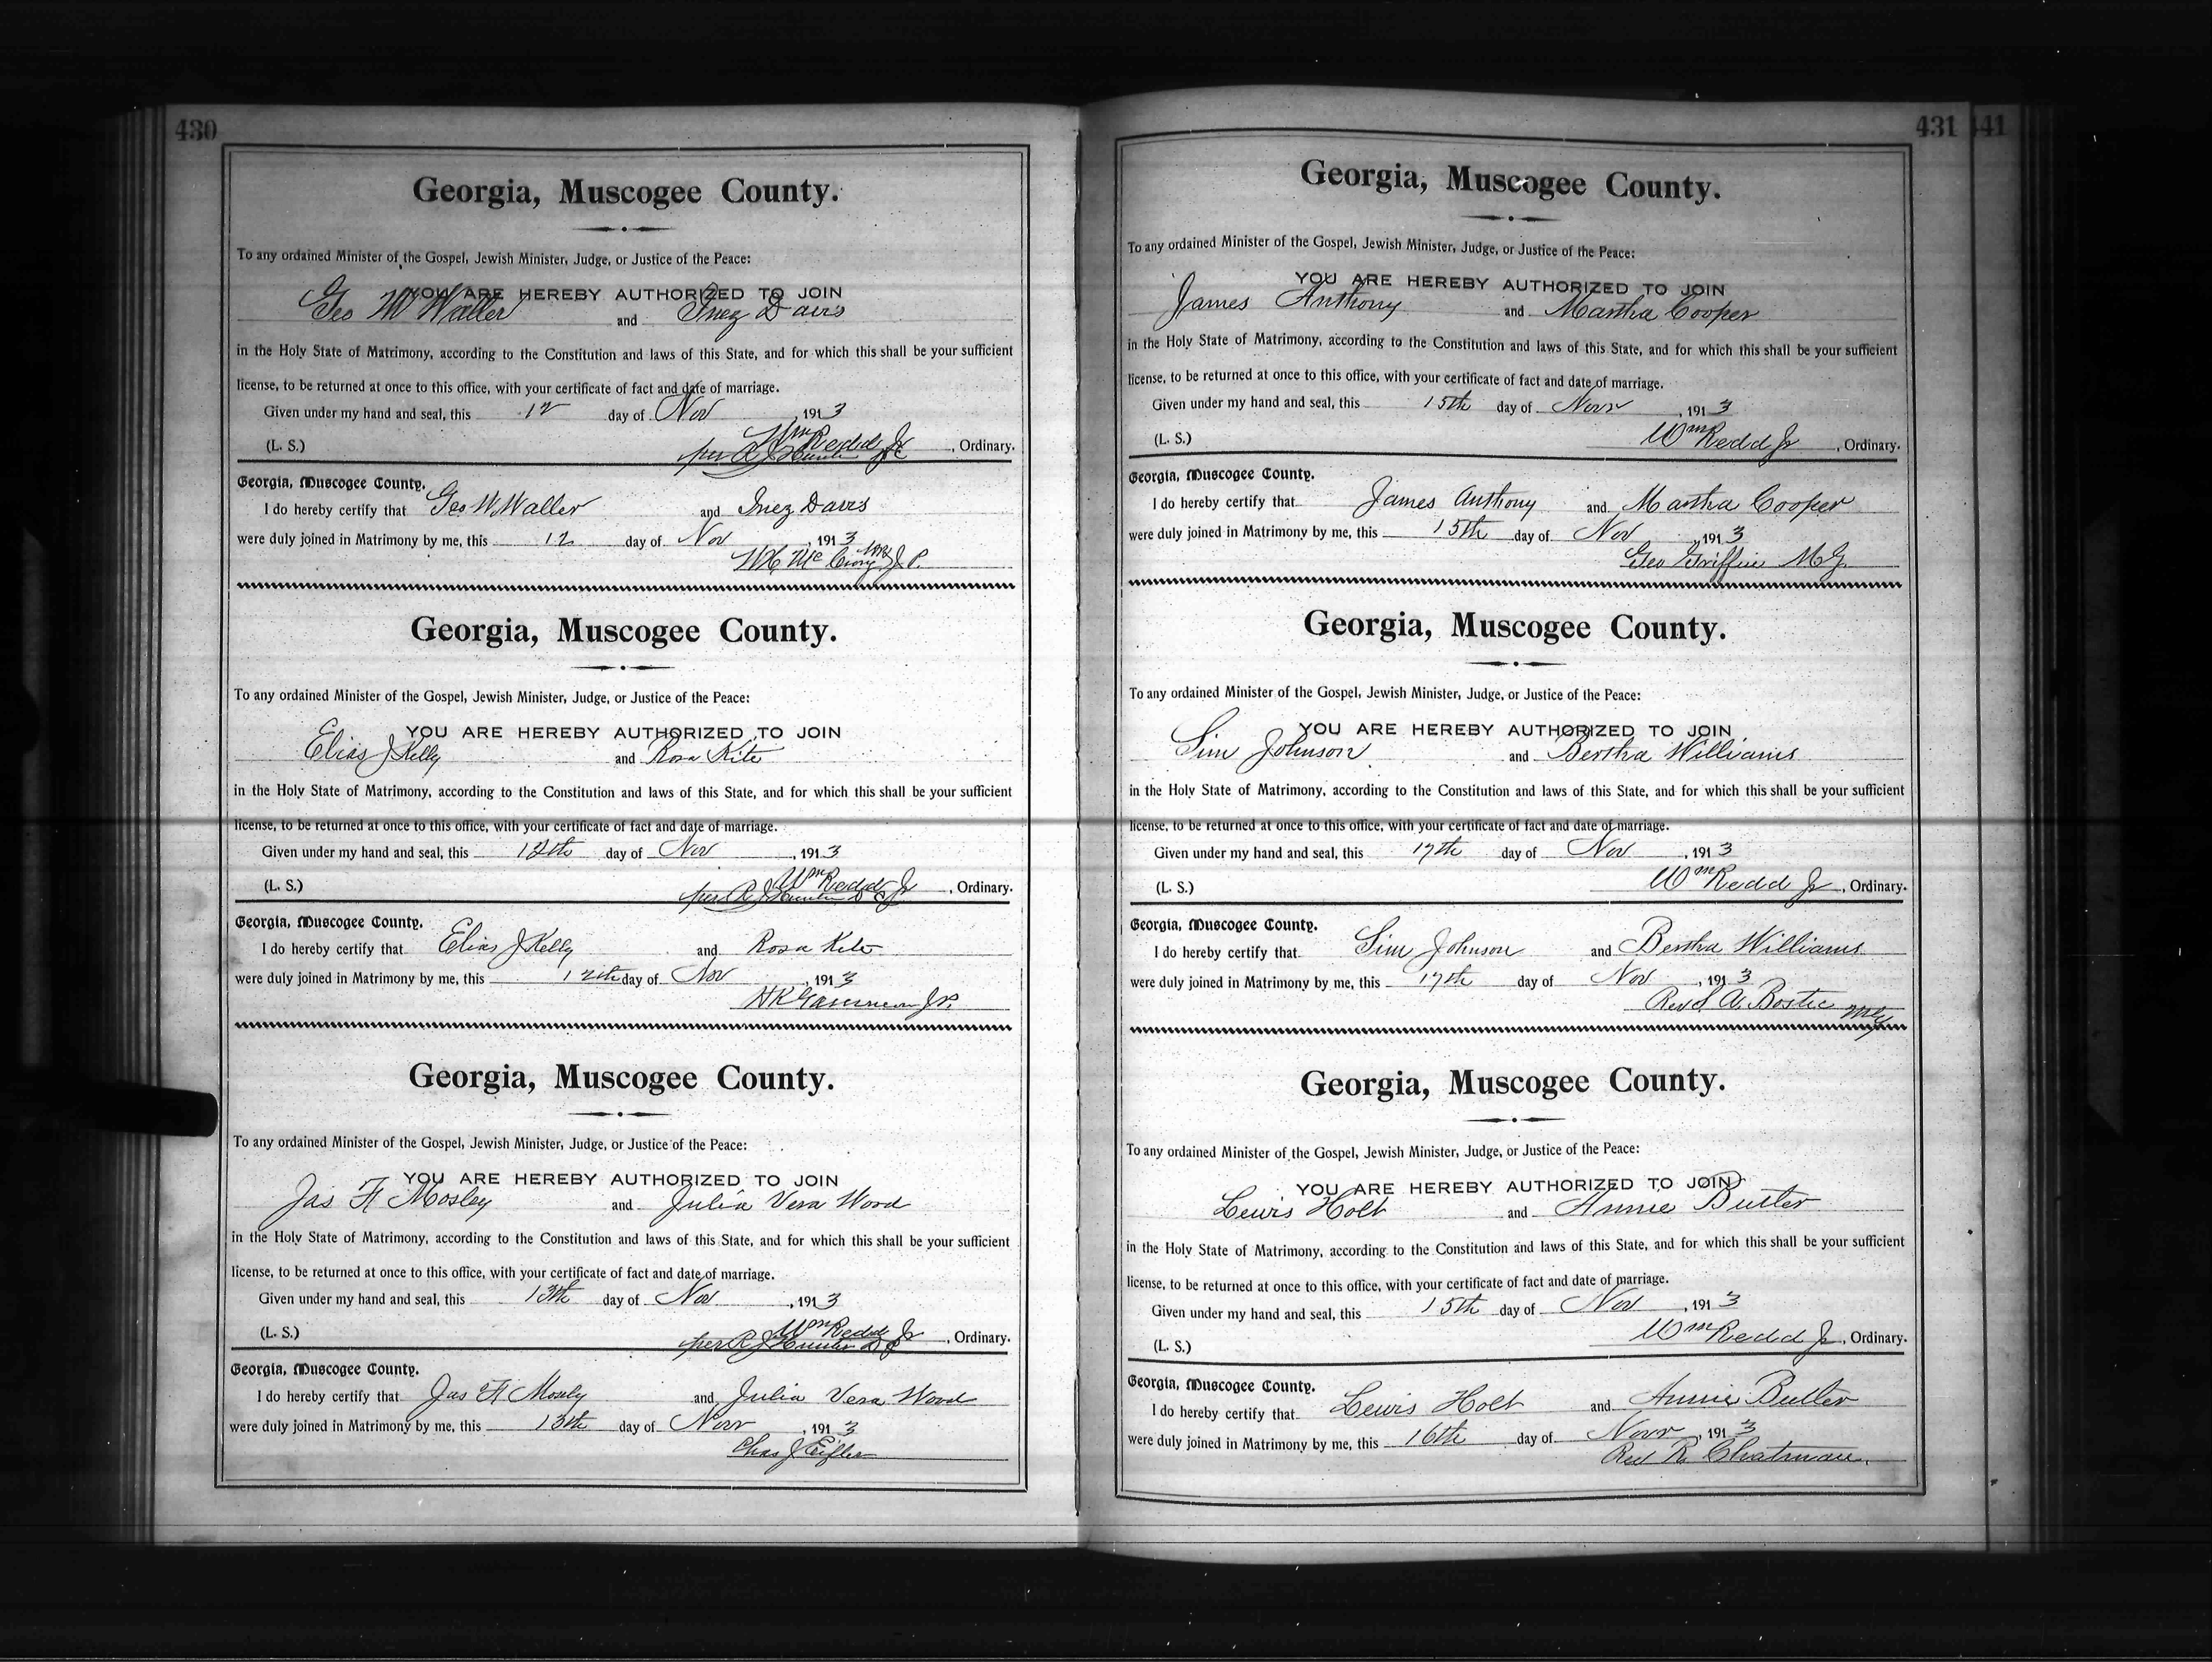 430
Georgia, Muscogee County.
To any ordained Minister of the Gospel, Jewish Minister, Judge, or Justice of the Peace:
YOU ARE HEREBY AUTHORIZED TO JOIN
Geo W Waller and Inez Davis
in the Holy State of Matrimony, according to the Constitution and laws of this State, and for which this shall be your sufficient
license, to be returned at once to this office, with your certificate of fact and date of marriage.
Given under my hand and seal, this 12 day of Nov, 1913
Wm Redd Jr
(L. S.) per R J Hunter, Ordinary.
Georgia, Muscogee County.
I do hereby certify that Geo W. Waller and Inez Davis
were duly joined in Matrimony by me, this 12 day of Nov, 1913
J. P.
Georgia, Muscogee County.
To any ordained Minister of the Gospel, Jewish Minister, Judge, or Justice of the Peace:
YOU ARE HEREBY AUTHORIZED TO JOIN
Elias J Kelly and Rosa Kite
in the Holy State of Matrimony, according to the Constitution and laws of this State, and for which this shall be your sufficient
license, to be returned at once to this office, with your certificate of fact and date of marriage.
Given under my hand and seal, this 12th day of Nov, 1913
Wm Redd Jr
(L. S.) per R J Hunter, Ordinary.
Georgia, Muscogee County.
I do hereby certify that Elias J Kelly and Rosa Kite
were duly joined in Matrimony by me, this 12th day of Nov, 1913
J.P.
Georgia, Muscogee County.
To any ordained Minister of the Gospel, Jewish Minister, Judge, or Justice of the Peace:
YOU ARE HEREBY AUTHORIZED TO JOIN
Jas F. Mosley and Julia Vera Wood
in the Holy State of Matrimony, according to the Constitution and laws of this State, and for which this shall be your sufficient
license, to be returned at once to this office, with your certificate of fact and date of marriage.
Given under my hand and seal, this 13th day of Nov, 1913
Wm Redd Jr
(L. S.) per R J Hunter, Ordinary.
Georgia, Muscogee County.
I do hereby certify that Jas F. Mosely and Julia Vera Wood
were duly joined in Matrimony by me, this 13th day of Novr, 1913
Chas J Eifler
431 441
Georgia, Muscogee County.
To any ordained Minister of the Gospel, Jewish Minister, Judge, or Justice of the Peace:
YOU ARE HEREBY AUTHORIZED TO JOIN
James Anthony and Martha Cooper
in the Holy State of Matrimony, according to the Constitution and laws of this State, and for which this shall be your sufficient
license, to be returned at once to this office, with your certificate of fact and date of marriage.
Given under my hand and seal, this 15th day of Novr, 1913
(L. S.) Wm Redd Jr, Ordinary.
Georgia, Muscogee County.
I do hereby certify that James Anthony and Martha Cooper
were duly joined in Matrimony by me, this 15th day of Nov, 1913
Geo Griffin M.G.
Georgia, Muscogee County.
To any ordained Minister of the Gospel, Jewish Minister, Judge, or Justice of the Peace:
YOU ARE HEREBY AUTHORIZED TO JOIN
Sim Johnson and Bertha Williams
in the Holy State of Matrimony, according to the Constitution and laws of this State, and for which this shall be your sufficient
license, to be returned at once to this office, with your certificate of fact and date of marriage.
Given under my hand and seal, this 17th day of Nov, 1913
(L. S.) Wm Redd Jr, Ordinary.
Georgia, Muscogee County.
I do hereby certify that Sim Johnson and Bertha Williams
were duly joined in Matrimony by me, this 17th day of Nov, 1913
Rev S. A. Bostic MG
Georgia, Muscogee County.
To any ordained Minister of the Gospel, Jewish Minister, Judge, or Justice of the Peace:
YOU ARE HEREBY AUTHORIZED TO JOIN
Lewis Holt and Annie Butler
in the Holy State of Matrimony, according to the Constitution and laws of this State, and for which this shall be your sufficient
license, to be returned at once to this office, with your certificate of fact and date of marriage.
Given under my hand and seal, this 15th day of Nov, 1913
(L. S.) Wm Redd Jr, Ordinary.
Georgia, Muscogee County.
I do hereby certify that Lewis Holt and Annie Butler
were duly joined in Matrimony by me, this 16th day of Novr, 1913
Rev R. Chatman.